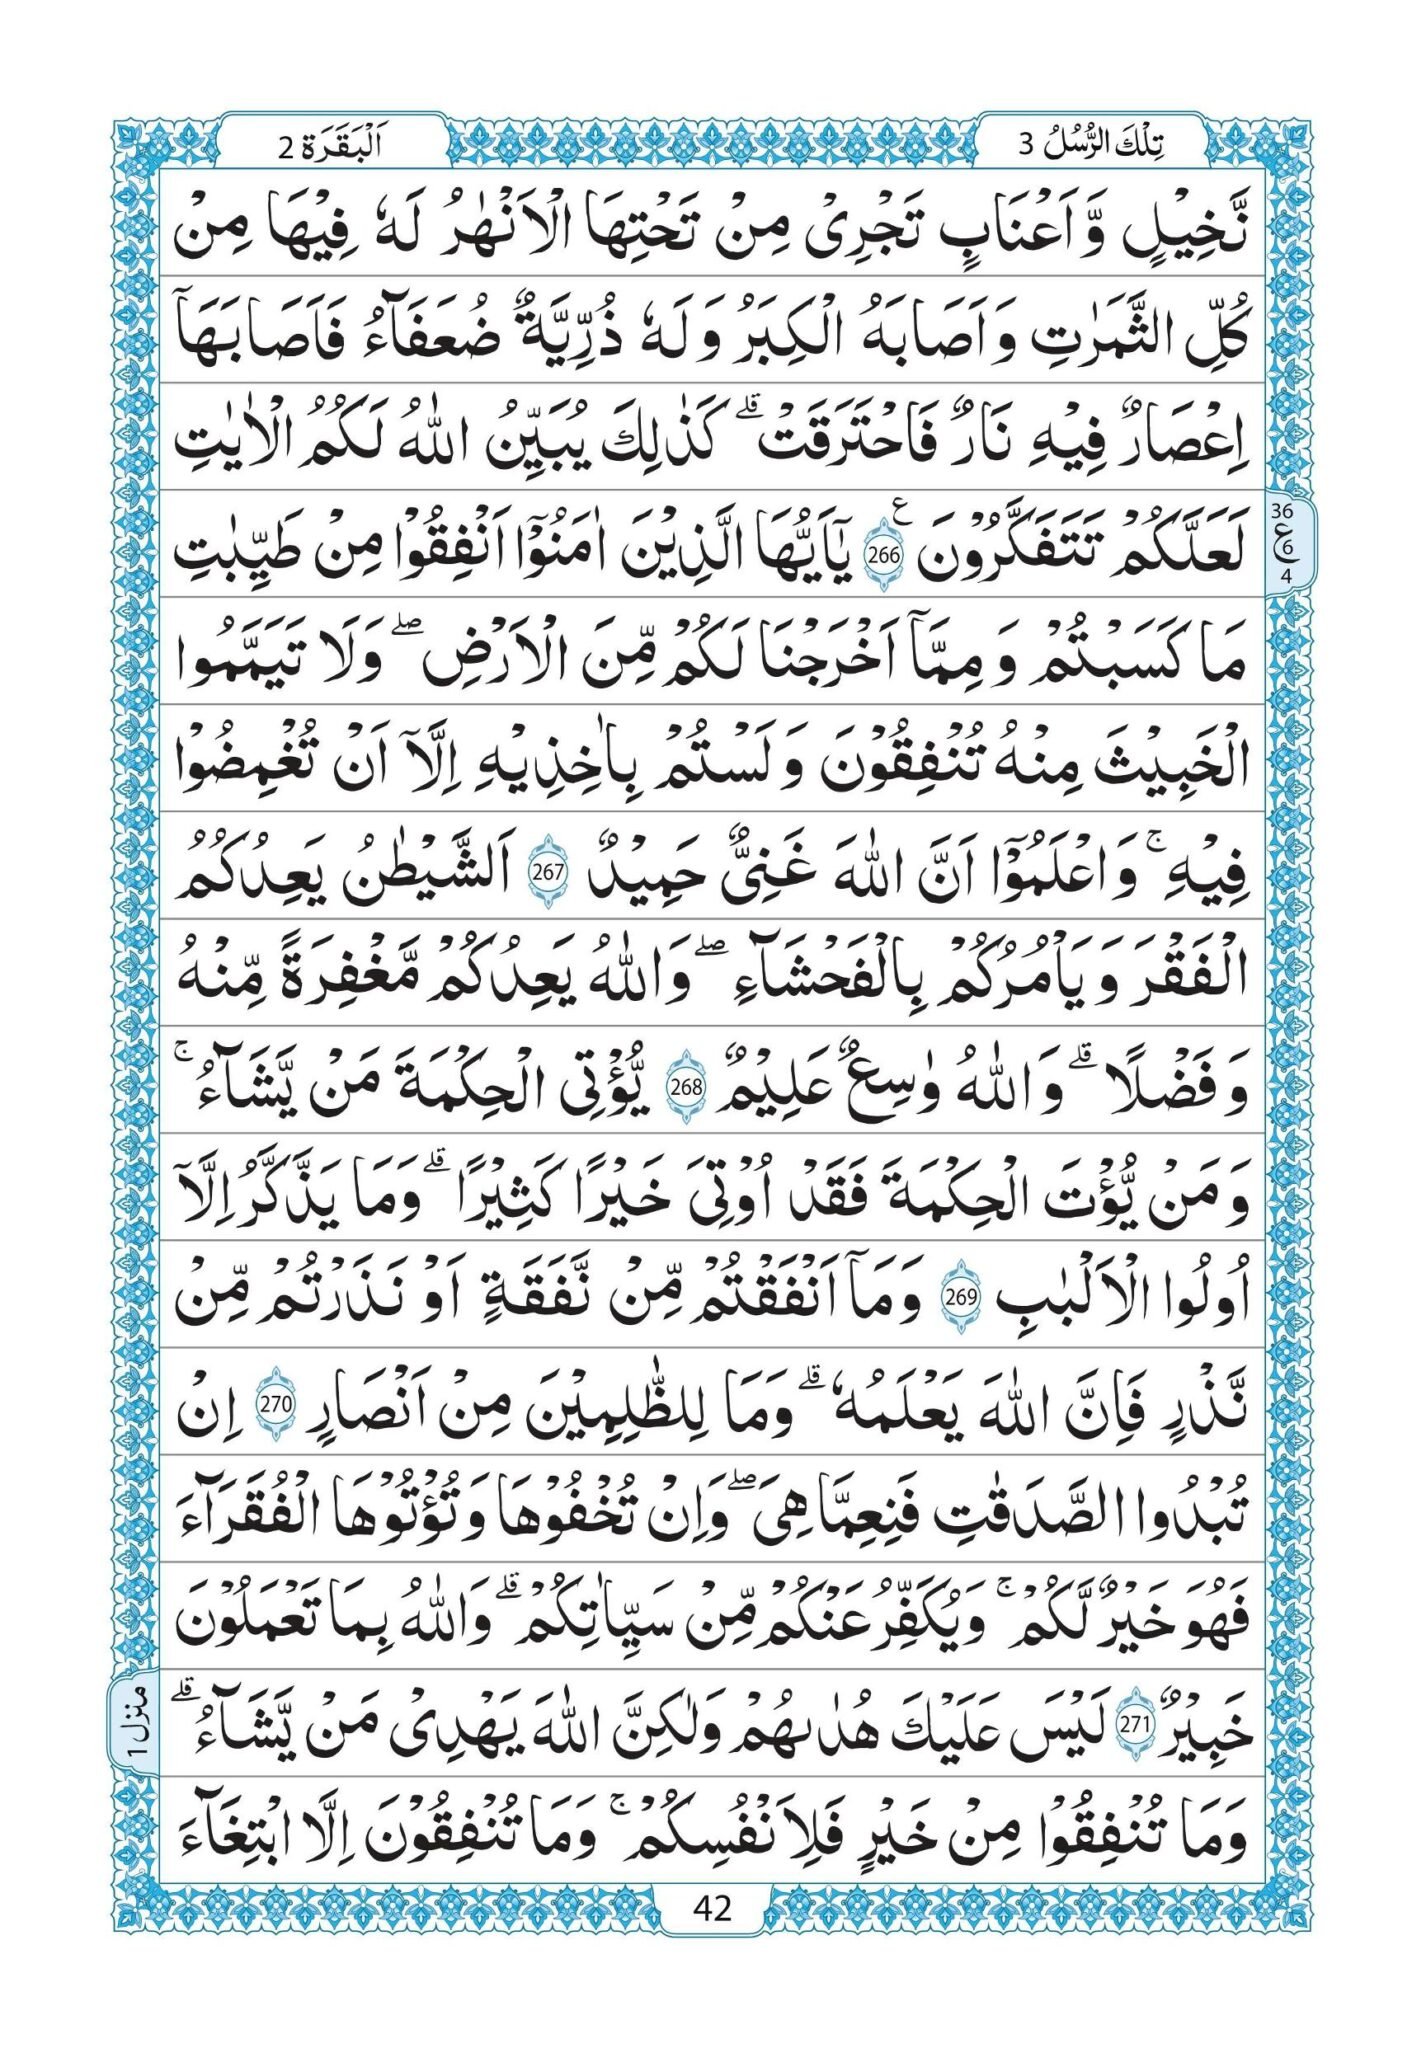 تِلْكَ الرُّسُلُ 3
اَلْبَقَرَة 2
نَّخِيْلٍ وَّ اَعْنَابٍ تَجْرِىْ مِنْ تَحْتِهَا الْاَنْهٰرُ لَهٗ فِيْهَا مِنْ
كُلِّ الثَّمَرٰتِ وَ اَصَابَهُ الْكِبَرُ وَ لَهٗ ذُرِّيَّةٌ ضُعَفَآءُ فَاَصَابَهَاۤ
اِعْصَارٌ فِيْهِ نَارٌ فَاحْتَرَقَتْ ؕ كَذٰلِكَ يُبَيِّنُ اللّٰهُ لَكُمُ الْاٰيٰتِ
36
ع 6
4
لَعَلَّكُمْ تَتَفَكَّرُوْنَ 266 ع يٰۤاَيُّهَا الَّذِيْنَ اٰمَنُوْۤا اَنْفِقُوْا مِنْ طَيِّبٰتِ
مَا كَسَبْتُمْ وَ مِمَّاۤ اَخْرَجْنَا لَكُمْ مِّنَ الْاَرْضِ ۖ وَلَا تَيَمَّمُوا
الْخَبِيْثَ مِنْهُ تُنْفِقُوْنَ وَ لَسْتُمْ بِاٰخِذِيْهِ اِلَّاۤ اَنْ تُغْمِضُوْا
فِيْهِ ۚ وَ اعْلَمُوْۤا اَنَّ اللّٰهَ غَنِىٌّ حَمِيْدٌ 267 اَلشَّيْطٰنُ يَعِدُكُمُ
الْفَقْرَ وَ يَاْمُرُكُمْ بِالْفَحْشَآءِ ۖ وَاللّٰهُ يَعِدُكُمْ مَّغْفِرَةً مِّنْهُ
وَ فَضْلًا ۗ وَ اللّٰهُ وٰسِعٌ عَلِيْمٌ 268 يُّؤْتِى الْحِكْمَةَ مَنْ يَّشَآءُ ۚ
وَ مَنْ يُّؤْتَ الْحِكْمَةَ فَقَدْ اُوْتِىَ خَيْرًا كَثِيْرًا ۗ وَمَا يَذَّكَّرُ اِلَّاۤ
اُولُوا الْاَلْبٰبِ 269 وَ مَاۤ اَنْفَقْتُمْ مِّنْ نَّفَقَةٍ اَوْ نَذَرْتُمْ مِّنْ
نَّذْرٍ فَاِنَّ اللّٰهَ يَعْلَمُهٗ ۗ وَمَا لِلظّٰلِمِيْنَ مِنْ اَنْصَارٍ 270 اِنْ
تُبْدُوا الصَّدَقٰتِ فَنِعِمَّا هِىَ ۖ وَاِنْ تُخْفُوْهَا وَ تُؤْتُوْهَا الْفُقَرَآءَ
فَهُوَ خَيْرٌ لَّكُمْ ۚ وَيُكَفِّرُ عَنْكُمْ مِّنْ سَيِّاٰتِكُمْ ۗ وَاللّٰهُ بِمَا تَعْمَلُوْنَ
خَبِيْرٌ 271 لَيْسَ عَلَيْكَ هُدٰىهُمْ وَلٰكِنَّ اللّٰهَ يَهْدِىْ مَنْ يَّشَآءُ ۗ
منزل 1
وَمَا تُنْفِقُوْا مِنْ خَيْرٍ فَلِاَنْفُسِكُمْ ۚ وَمَا تُنْفِقُوْنَ اِلَّا ابْتِغَآءَ
42